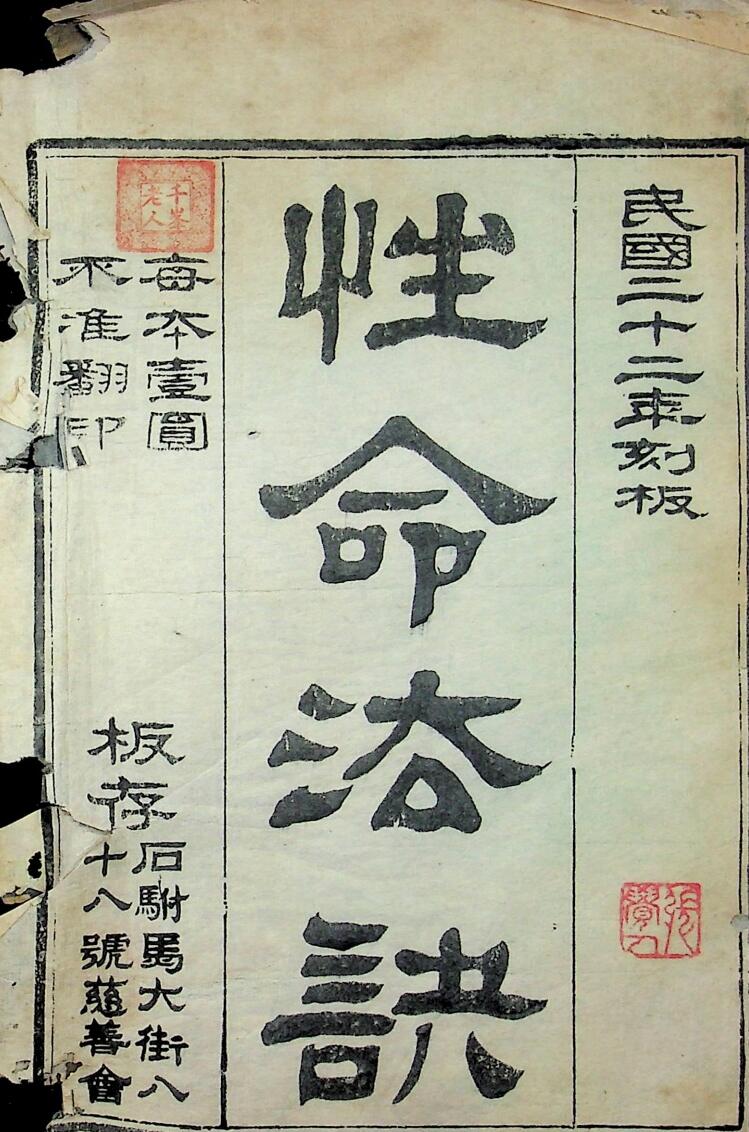 民國二十二年刻板
性命法訣
每本壹圓
不准翻印
板存
石駙馬大街八
十八號慈善會
千峯
老人